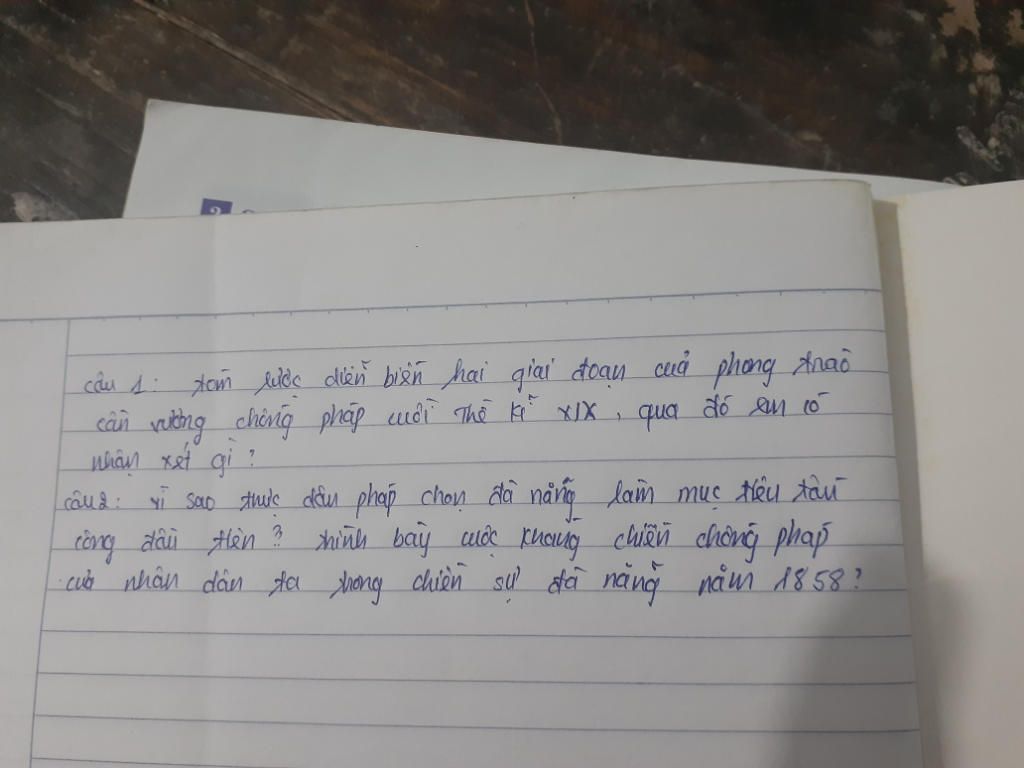 2
câu 1: tóm lược diễn biến hai giai đoạn của phong trào
cần vương chống pháp cuối thế kỉ XIX, qua đó em có
nhận xét gì?
câu 2: vì sao thực dân pháp chọn đà nẵng làm mục tiêu tấn
công đầu tiên? trình bày cuộc kháng chiến chống pháp
của nhân dân ta trong chiến sự đà nẵng năm 1858?